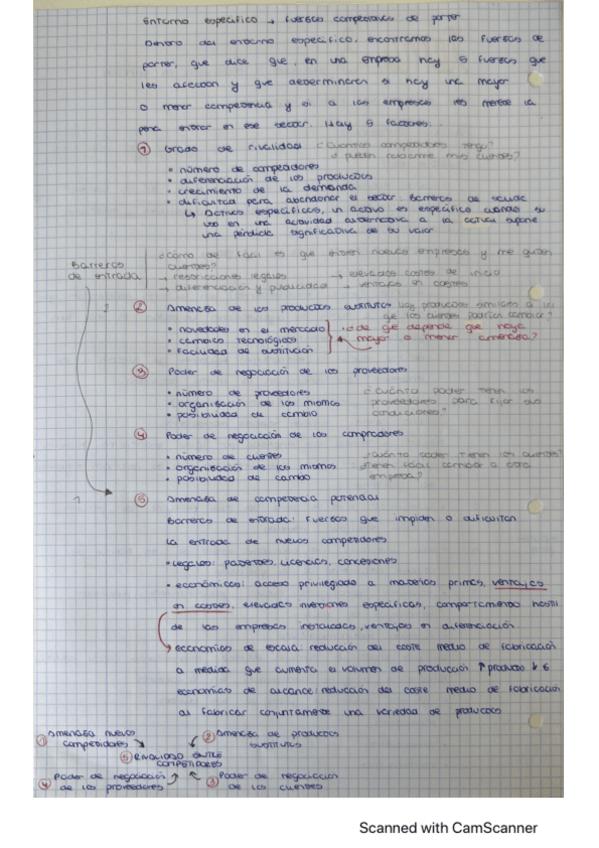 Entorno específico → fuerzas competitivas de porter
Dentro del entorno específico, encontramos las fuerzas de
porter, que dice que, en una empresa hay 5 fuerzas que
les afectan y que determinaran si hay una mayor
o menor competencia y si a las empresas les merece la
pena entrar en ese sector. Hay 5 factores:
① Grado de rivalidad ¿Cuántos competidores tengo?
¿pueden robarme mis clientes?
• número de competidores
• diferenciación de los productos
• crecimiento de la demanda
• dificultad para abandonar el sector. Barreras de salida
↳ Activos específicos, un activo es específico cuando su
uso en una actividad alternativa a la actual supone
una pérdida significativa de su valor
Barreras
de entrada
¿Cómo de fácil es que entren nuevas empresas y me quiten
clientes?
→ restricciones legales → elevados costes de inicio
→ diferenciación y publicidad → ventajas en costes
② Amenaza de los productos sustitutos ¿Hay productos similares a los
que los clientes podrían cambiar?
• novedades en el mercado
• cambios tecnológicos
• facilidad de sustitución
¿de qué depende que haya
mayor o menor amenaza?
③ Poder de negociación de los proveedores
• número de proveedores
• organización de los mismos
• posibilidad de cambio
¿Cuánto poder tienen los
proveedores para fijar sus
condiciones?
④ Poder de negociación de los compradores
• número de clientes
• organización de los mismos
• posibilidad de cambio
¿Cuánto poder tienen los clientes?
¿Tienen fácil cambiar a otra
empresa?
⑤ Amenaza de competencia potencial
Barreras de entrada: Fuerzas que impiden o dificultan
la entrada de nuevos competidores
• Legales: patentes, licencias, concesiones
• económicos: acceso privilegiado a materias primas, ventajas
en costes, elevadas inversiones específicas, comportamiento hostil
de las empresas instaladas, ventajas en diferenciación
economías de escala: reducción del coste medio de fabricación
a medida que aumenta el volumen de producción ↑ producto ↓ €
economías de alcance: reducción del coste medio de fabricación
al fabricar conjuntamente una variedad de productos
① Amenaza nuevos
competidores
② Amenaza de productos
sustitutos
⑤ RIVALIDAD ENTRE
COMPETIDORES
④ Poder de negociación
de los proveedores
③ Poder de negociación
de los clientes
Scanned with CamScanner